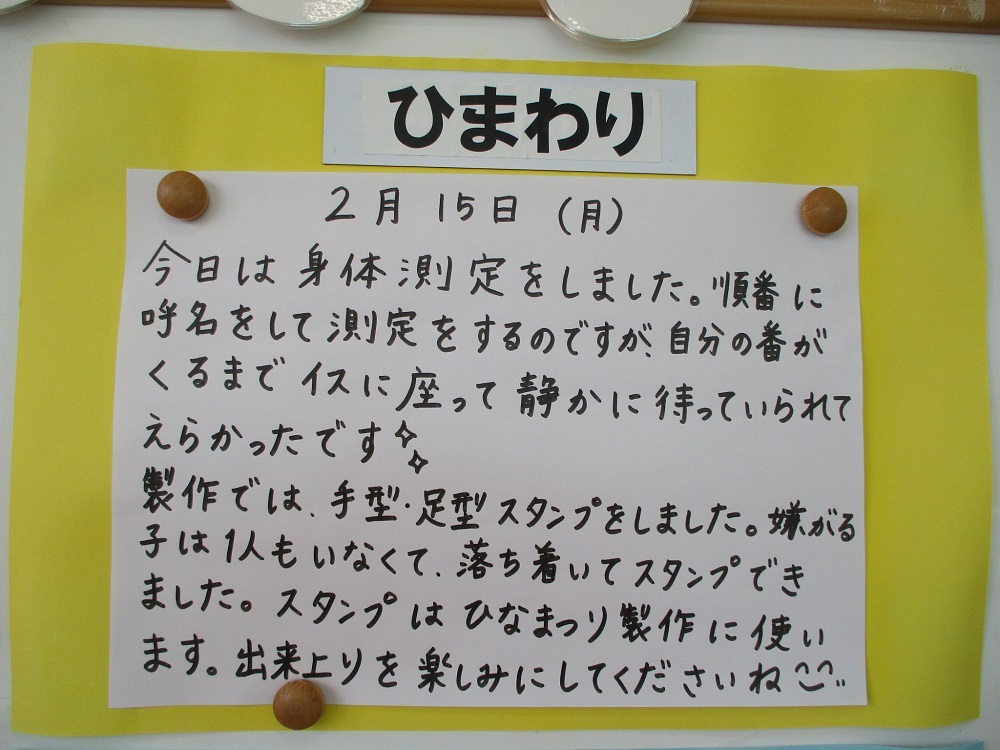 ひまわり
2月15日(月)
今日は身体測定をしました。順番に
呼名をして測定をするのですが、自分の番が
くるまでイスに座って静かに待っていられて
えらかったです
製作では、手型・足型スタンプをしました。嫌がる
子は1人もいなくて、落ち着いてスタンプでき
ました。スタンプはひなまつり製作に使い
ます。出来上りを楽しみにしてくださいね